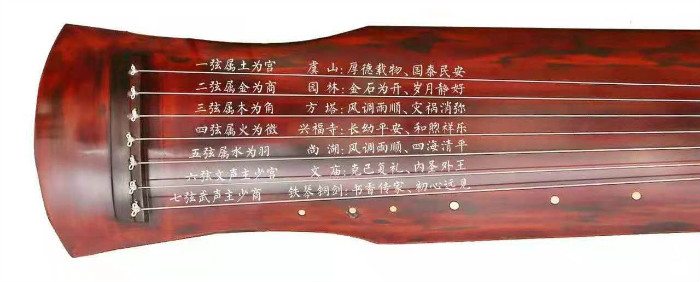 一弦属土为宫 虞山:厚德载物、国泰民安
二弦属金为商 园林:金石为开、岁月静好
三弦属木为角 方塔:风调雨顺、灾祸消弥
四弦属火为徵 兴福寺:长幼平安、和煦祥乐
五弦属水为羽 尚湖:风调雨顺、四海清平
六弦文声主少宫 文庙:克己复礼、内圣外王
七弦武声主少商 铁琴铜剑:书香传家、初心远见